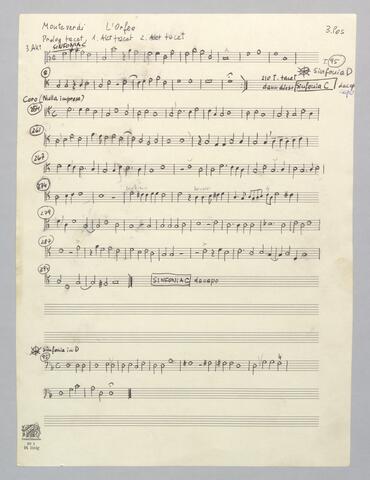 Monteverdi L'Orfeo 3. Pos
Prolog tacet 1. Akt tacet 2. Akt tacet
3. Akt SINFONIA C
T. 95
Sinfonia D
8
210 T. tacet
dann diese Sinfonia C dacapo
Coro (Nulla impresa)
261
267
279
287
SINFONIA C da capo
Sinfonia in D